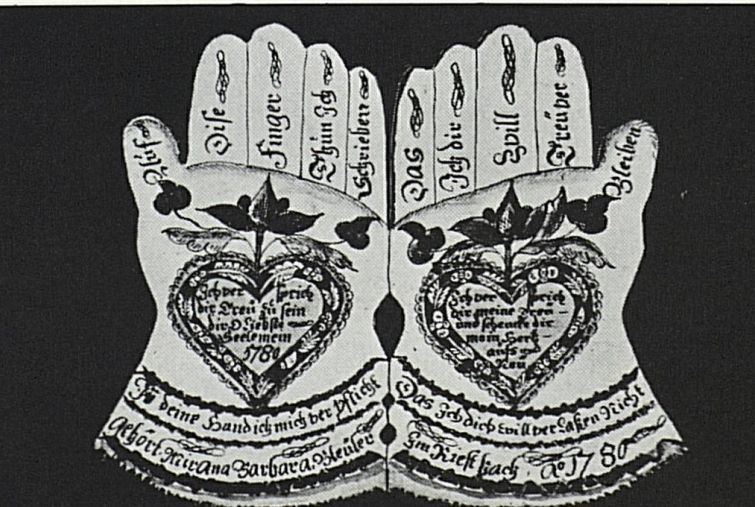 Auf
Dise
Finger
Thun Ich
Schrieben
Das
Ich dir
Will
Treü ver
Bleiben
Ich ver sprich
dir Treü zu sein
dir O Liebste
Seele mein
1780
Ich ver sprich
dir meine Treü
und schencke dir
mein Hertz
aufs
Neu
In deine Hand ich mich ver pflicht
Das Ich dich will ver Laßen Nicht
Gehört Mir Ana Barbara Bleüler
Im Riesbach Aº 1780